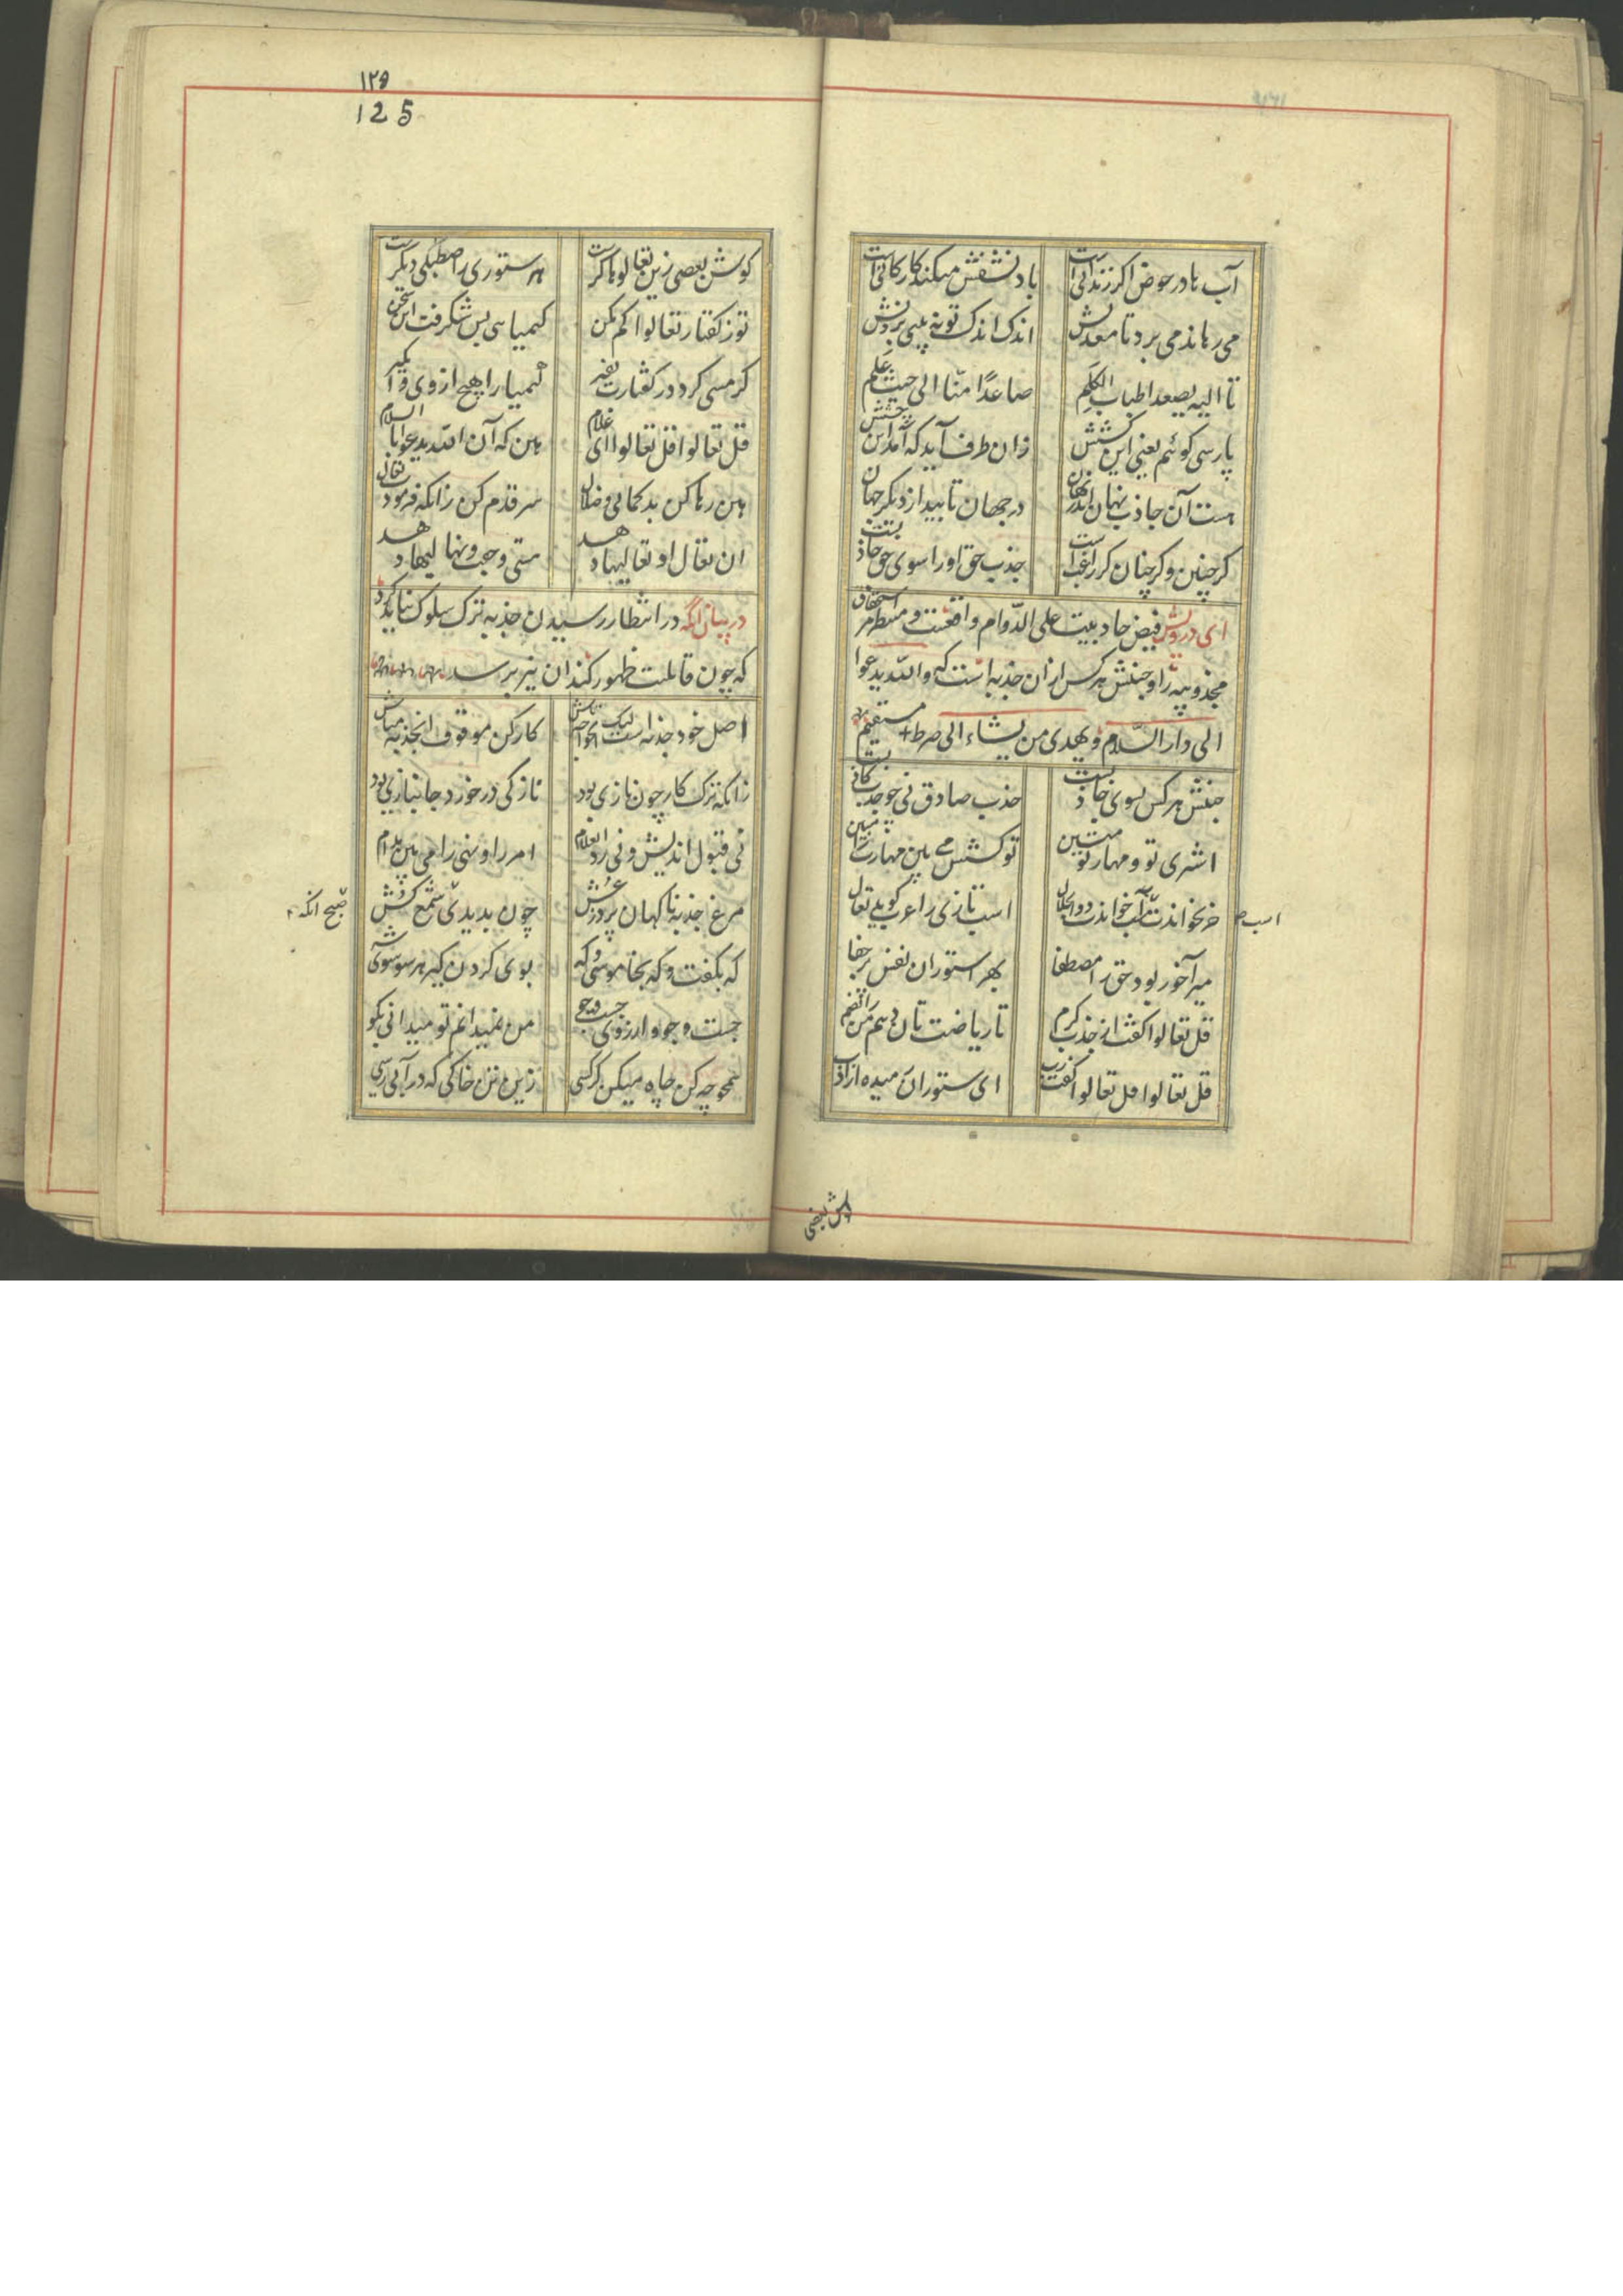 آب ما در حوض اگر زندانی است باد نشفش میکند کار کانی است
می رهاند می برد تا معدنش اندک اندک تو نه بینی بردنش
تا الیه یصعد اطیاب الکلم صاعدًا منّا الی حیث علم
پارسی گوئیم یعنی این کشش زان طرف آید که آمد آن چشش
هست آن جاذب نهان اندر نهان در جهان تابید از دیگر جهان
گر چنین و گر چنان گر راغب است جذب حق او را سوی حق جاذبست
ای درویش فیض جاذبیت علی الدّوام واقعست و منتظر استحقاق
مجذوبیه را و جنبش هرکس از ان جذبه است که والله یدعوا
الی دار السّلام و یهدی من یشاء الی صرط مستقیم
جنبش هرکس بسوی جاذبست جذب صادق نی چو جذب کاذبست
اشتری تو و مهار تو متین تو کشش می بین مهارت را مبین
خر نخواندت اسب خواندت ذو الجلال اسب تازی را عرب گوید تعال
اسب
میر آخور بود حق را مصطفا بهر استوران نفس پر جفا
قل تعالوا گفت از جذب کرم تا ریاضت تان دهم من رائضم
قل تعالوا قل تعالوا گفت رب ای ستوران رمیده از ادب
گوش بعضی
۱۲۵
125
گوش بعضی زین تعالوها کرست هر ستوری را صطبلی دیگرست
تو ز گفتار تعالوا کم مکن کیمیایی بس شگرفت این سخن
گر مسی گردد ز گفتارت نفیر کیمیا را هیچ از وی وا مگیر
قل تعالوا قل تعالوا ای غلام هین که آن الله یدعوا بالسلام
هین رها کن بدگمانی و ضلال سر قدم کن زانکه فرمود تعال
در بیان انکه در انتظار رسیدن جذبه ترک سلوک نباید کرد
که چون قابلیت ظهور کند ان نیز برسد
اصل خود جذبه است لیک ای خواجه تاش کار کن موقوف ان جذبه مباش
زانکه ترک کار چون نازی بود نازکی در خورد جانبازی بود
نی قبول اندیش و نی رد ای غلام امر را و نهی را می بین مدام
مرغ جذبه ناکهان پرد ز عش چون بدیدی صبح شمع کش
صبح انگه
که بگفت و که بخاموشی و که بوی کردن گیر هر سو سو
جست و جو و ارزوی جست و جو من نمیدانم تو میدانی بگو
همچو چه کن چاه میکن گر کسی زین تن خاکی که در آبی رسی